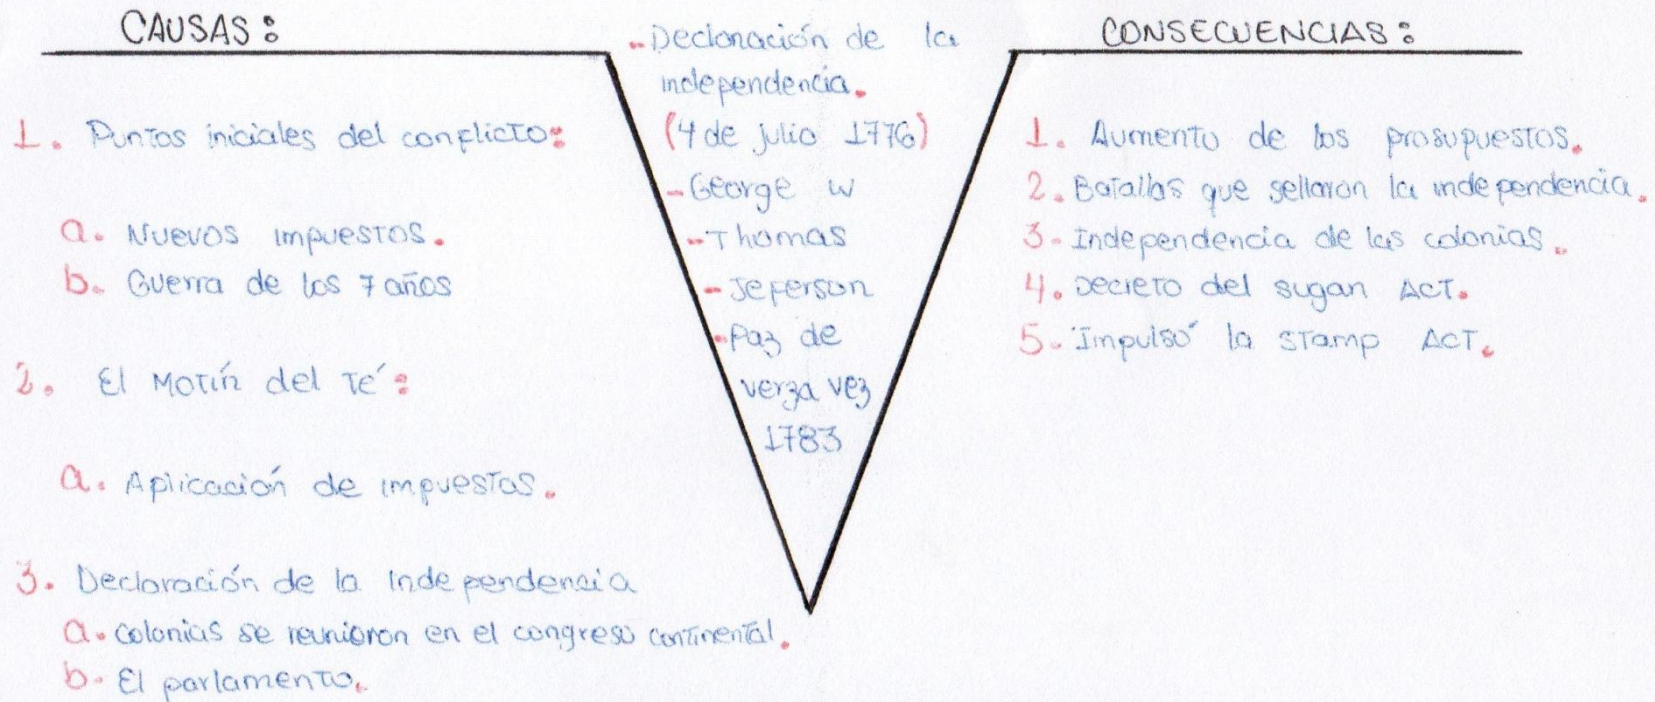 CAUSAS:
1. Puntos iniciales del conflicto:
a. Nuevos impuestos.
b. Guerra de los 7 años
2. El Motín del Té:
a. Aplicación de impuestos.
3. Declaración de la Independencia
a. colonias se reunieron en el congreso continental.
b. El parlamento.
- Declaración de la
independencia.
(4 de julio 1776)
- George W
- Thomas
- Jeferson
- Paz de
verza vez
1783
CONSECUENCIAS:
1. Aumento de los prosupuestos.
2. Batallas que sellaron la independencia.
3. Independencia de las colonias.
4. Decreto del sugan ACT.
5. Impulsó la STamp ACT.